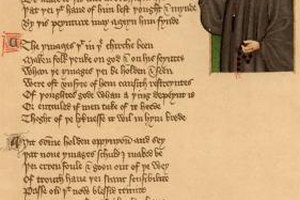 Þat þei þt haue of him lest þought & mynde
By þis peynture may ageyn him fynde
The ymages þt in þe chirche been
Maken folk þenke on god & on his seyntes
Whan þe ymages þei be holden & seen
Were oft vnsyte of hem causith restreyntes
Of þoughtes gode whan a þing depeynt is
Or entailed if men take of it heede
Thoght of þe lyknesse it wil in hym brede
Yit somme holden oppynyoun and sey
Þat none ymages schuld I maked be
Þei erren foule & goon out of þe wey
Of trouth haue þei scant sensibilite
Passe ouer þt now blessid trinite